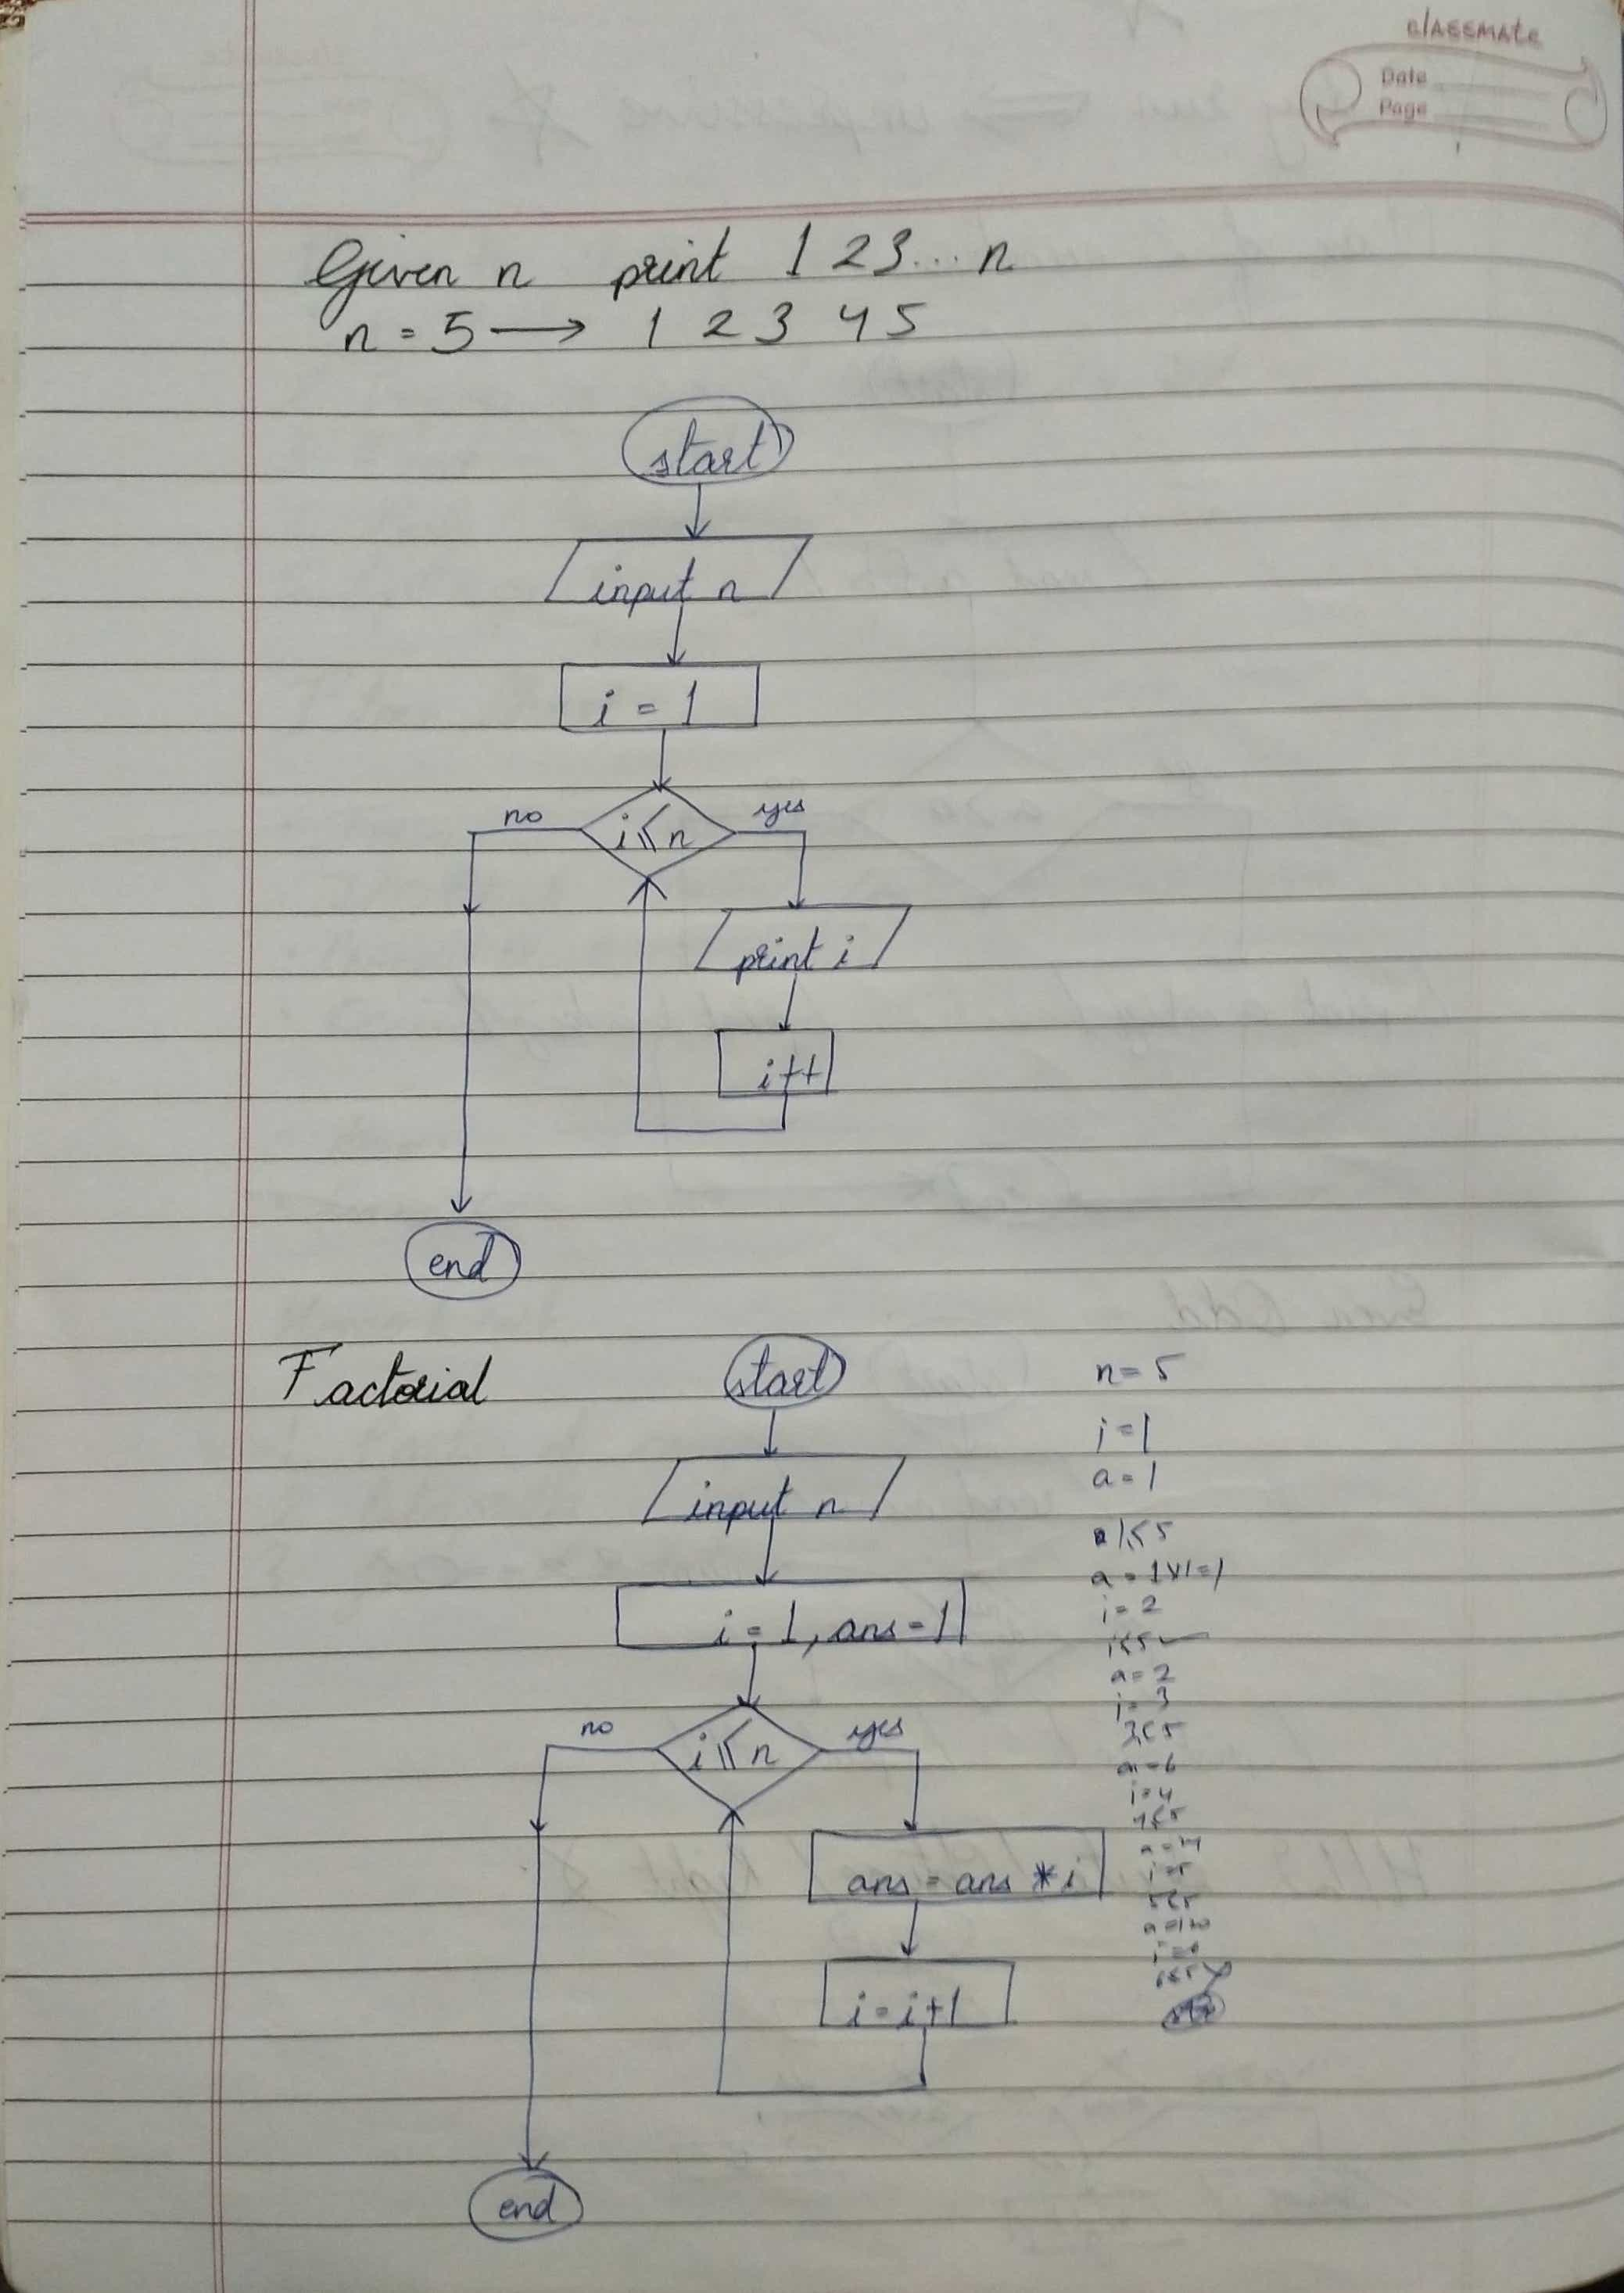 classmate
Date
Page
Given n print 1 2 3... n
n = 5 → 1 2 3 4 5
start
input n
i = 1
no
i ≤ n
yes
print i
i++
end
Factorial
start
input n
i = 1, ans = 1
no
i ≤ n
yes
ans = ans * i
i = i+1
end
n = 5
i = 1
a = 1
1 ≤ 5
a = 1x1 = 1
i = 2
i ≤ 5 ✓
a = 2
i = 3
3 ≤ 5
a = 6
i = 4
4 ≤ 5
i = 5
5 ≤ 5
a = 120
i = 6